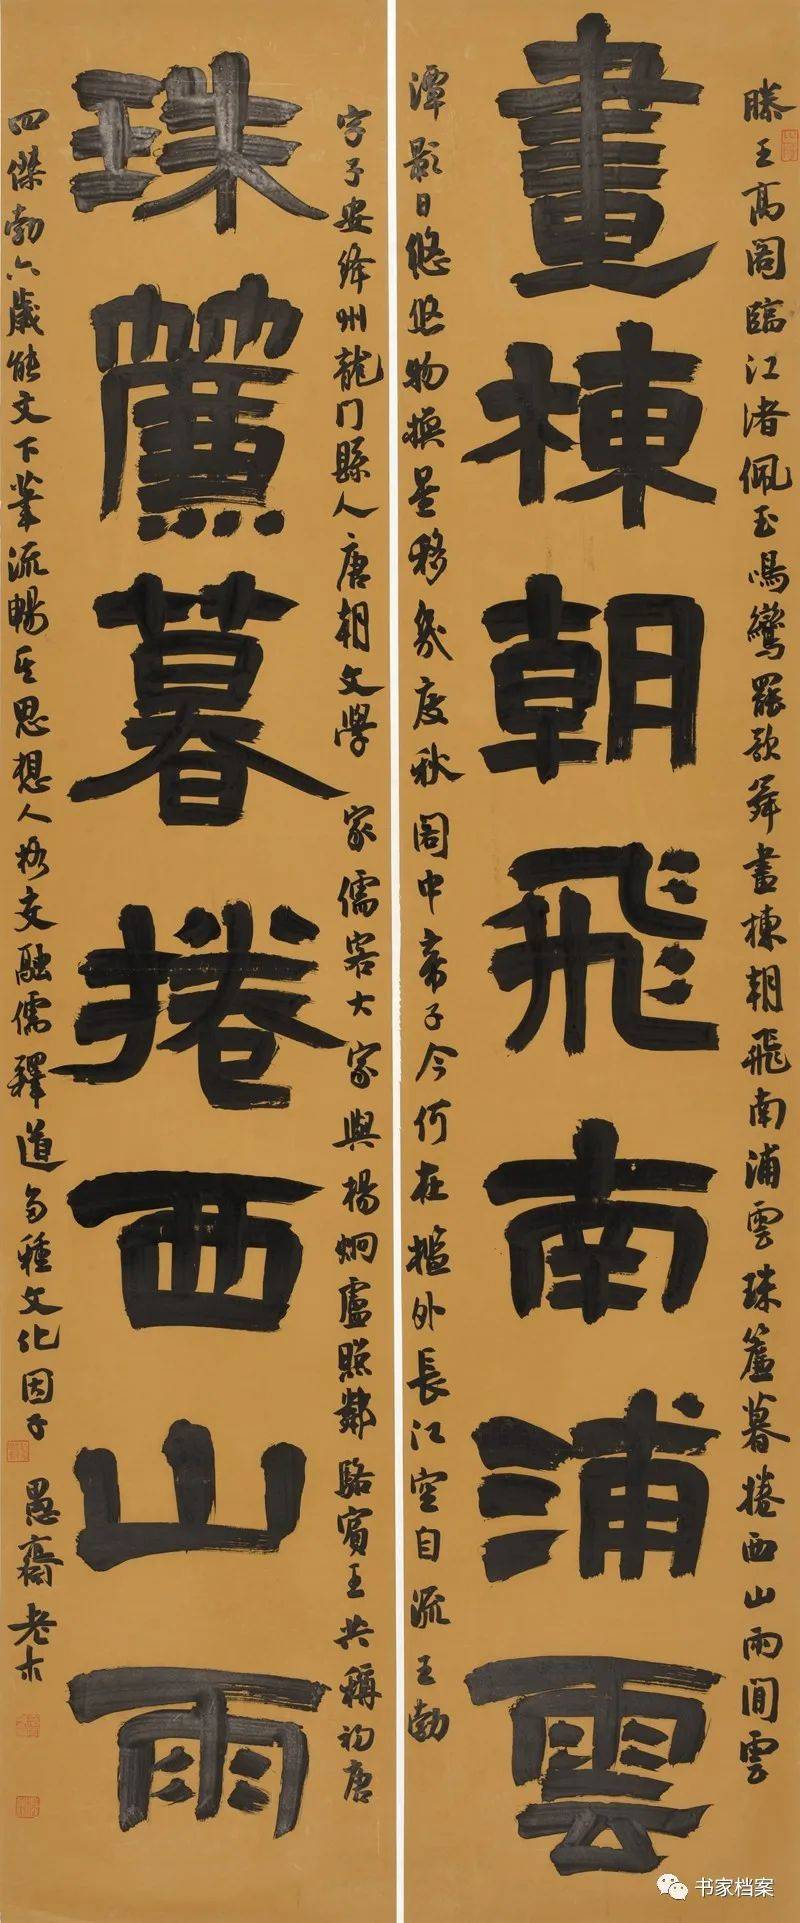 畫棟朝飛南浦雲
滕王高閣臨江渚佩玉鳴鸞罷歌舞畫棟朝飛南浦雲珠簾暮捲西山雨閒雲
潭影日悠悠物換星移幾度秋閣中帝子今何在檻外長江空自流王勃
珠簾暮捲西山雨
字子安絳州龍門縣人唐朝文學家儒客大家與楊炯盧照鄰駱賓王共稱初唐
四傑勃六歲能文下筆流暢其思想人格交融儒釋道多種文化因子
愚齋老木
书家档案